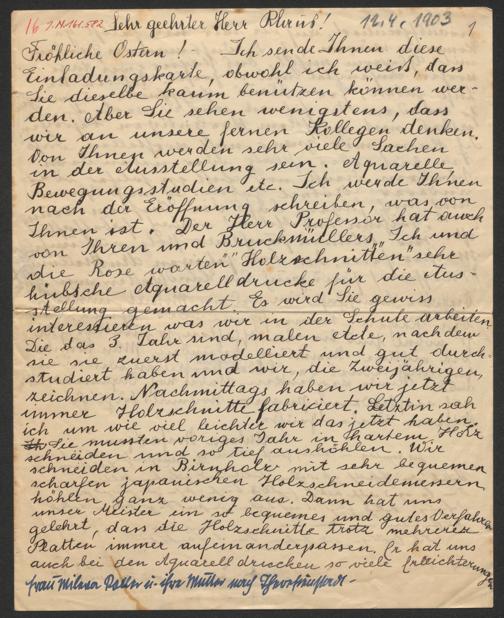 16 I.N. 161.582 Sehr geehrter Herr Rhrus! 12.4.1903 1
Fröhliche Ostern! Ich sende Ihnen diese
Einladungskarte, obwohl ich weiß, dass
Sie dieselbe kaum benützen können wer-
den. Aber Sie sehen wenigstens, dass
wir an unsere fernen Kollegen denken.
Von Ihnen werden sehr viele Sachen
in der Ausstellung sein. Aquarelle,
Bewegungsstudien etc. Ich werde Ihnen
nach der Eröffnung schreiben, was von
Ihnen ist. Der Herr Professor hat auch
von Ihren und Bruckmüllers „Ich und
die Rose warten" Holzschnitten sehr
hübsche Aquarelldrucke für die Aus-
stellung gemacht. Es wird Sie gewiss
interessieren was wir in der Schule arbeiten.
Die das 3. Jahr sind, malen etc, nachdem
sie sie zuerst modelliert und gut durch-
studiert haben und wir, die zweijährigen,
zeichnen. Nachmittags haben wir jetzt
immer Holzschnitte fabriciert. Letztin sah
ich um wie viel leichter wir das jetzt haben.
Sie mussten voriges Jahr in hartem Holz
schneiden und so tief aushöhlen. Wir
schneiden in Birnholz mit sehr bequemen
scharfen japanischen Holzschneidemessern,
höhlen ganz wenig aus. Dann hat uns
unser Meister ein so bequemes und gutes Verfahren
gelehrt, dass die Holzschnitte trotz mehrerer
Platten immer aufeinanderpassen. Er hat uns
auch bei den Aquarelldrucken so viele Erleichterungen
Frau Milena Roller u. ihre Mutter nach Theresienstadt-